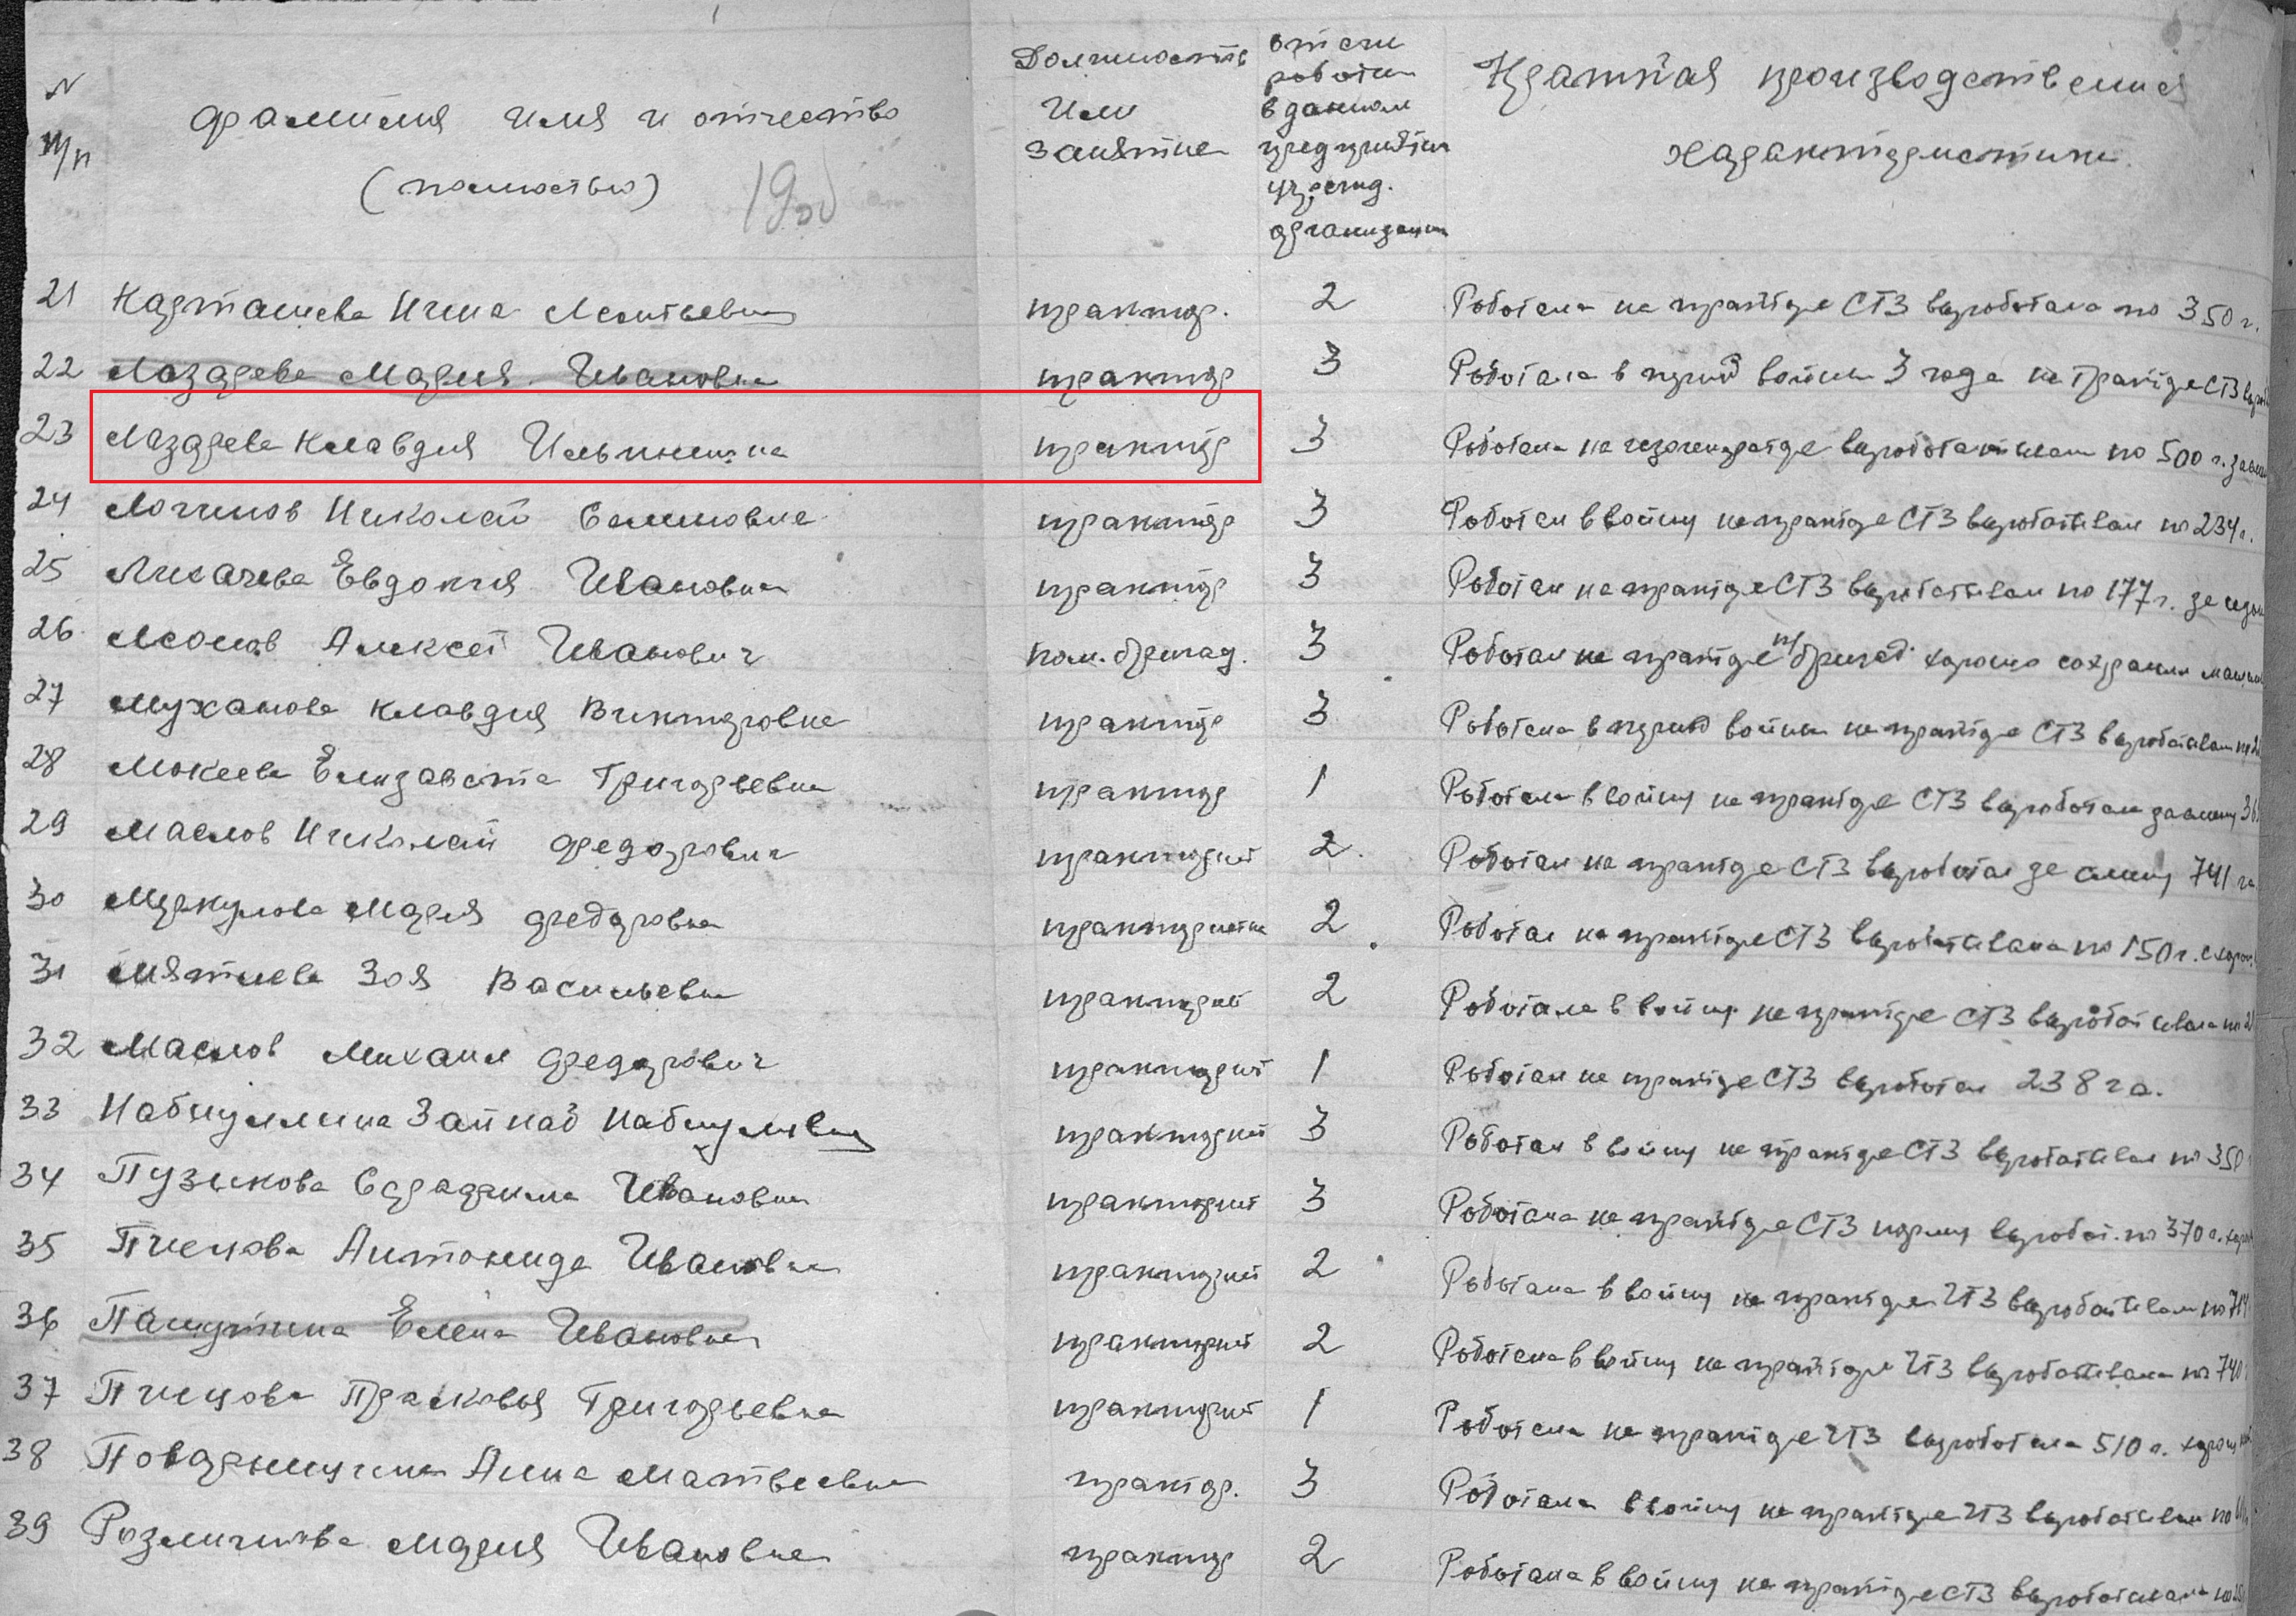 N п/п Фамилия имя и отчество (полностью) Должность или занятие
в данном
Краткая производственная характеристика.
21 Карташева Нина Леонтьевна трактор. 2 Работала на тракторе СТЗ выработала по 350 г.
22 Лазарева Мария Ивановна трактор 3 Работала в период войны 3 года на тракторе СТЗ
23 Лазарева Клавдия Ильинична трактор 3 Работала на газогенераторе вырабатывала по 500 г.
24 Логинов Николай трактор 3 Работал в войну на тракторе СТЗ вырабатывал по 234 г.
25 Лихачева Евдокия Ивановна трактор 3 Работал на тракторе СТЗ вырабатывал по 177 г. за
26 Алексей Иванович пом. бригад. 3 Работал на тракторе п/бригад. хорошо сохранял
27 Муханова Клавдия Викторовна трактор 3 Работала в период войны на тракторе СТЗ вырабатывала
28 Мокеева Елизавета Григорьевна трактор 1 Работала в войну на тракторе СТЗ выработала
29 Маслов Николай Федорович тракторист 2 Работал на тракторе СТЗ выработал за смену 741 га
30 Меркулова Мария Федоровна трактористка 2 Работал на тракторе СТЗ вырабатывала по 150 г.
31 Зоя Васильевна тракторист 2 Работала в войну на тракторе СТЗ вырабатывала по
32 Маслов Михаил Федорович тракторист 1 Работал на тракторе СТЗ выработал 238 га.
33 Набиуллина тракторист 3 Работал в войну на тракторе СТЗ вырабатывал по 350
34 Пузикова Ивановна тракторист 3 Работала на тракторе СТЗ норму выработ. по 370 г.
35 Пчелова Антонида Ивановна тракторист 2 Работала в войну на тракторе ЧТЗ вырабатывал по
36 Елена Ивановна тракторист 2 Работала в войну на тракторе ЧТЗ вырабатывала по 740
37 Прасковья Григорьевна тракторист 1 Работала на тракторе ЧТЗ выработала 510 г.
38 Анна Матвеевна трактор. 3 Работала в войну на тракторе ЧТЗ вырабатывал по
39 Мария Ивановна трактор 2 Работала в войну на тракторе СТЗ вырабатывала по